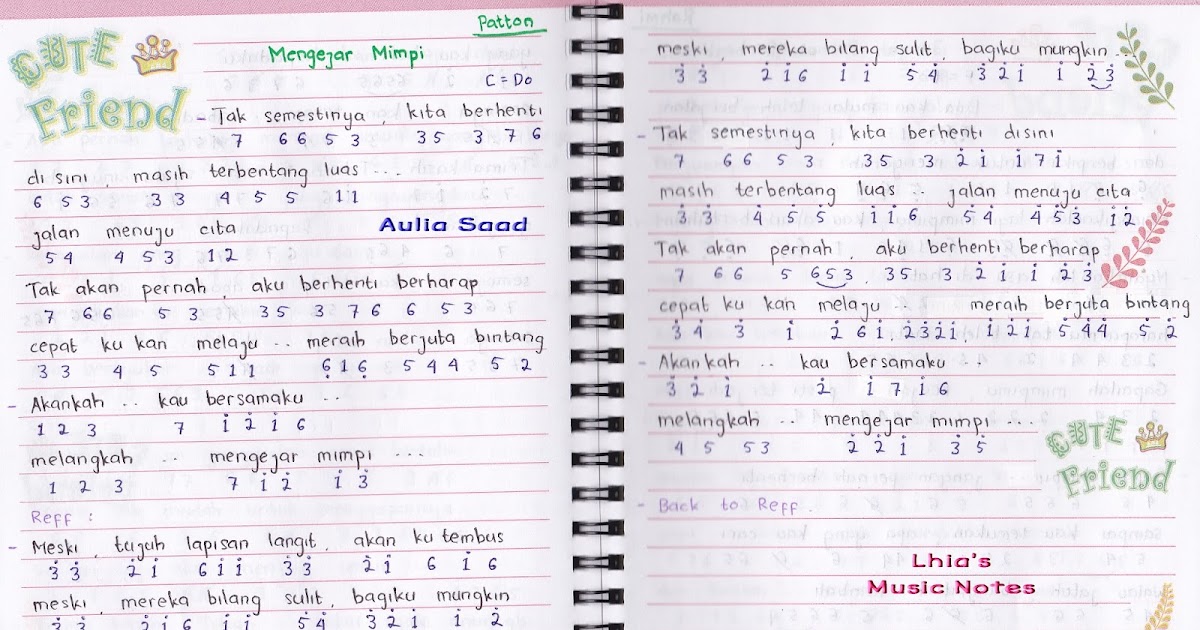 CUTE Friend
Patton
Mengejar Mimpi
C = Do
- Tak semestinya, kita berhenti
7 6 6 5 3 3 5 3 7 6
di sini, masih terbentang luas ...
6 5 3 3 3 4 5 5 1 1
jalan menuju cita
5 4 4 5 3 1 2
Aulia Saad
Tak akan pernah, aku berhenti berharap
7 6 6 5 3 3 5 3 7 6 6 5 3
cepat ku kan melaju .. meraih berjuta bintang
3 3 4 5 5 1 1 6 1 6 5 4 4 5 2
- Akankah .. kau bersamaku ...
1 2 3 7 1̇ 2̇ 1̇ 6
melangkah .. mengejar mimpi ...
1 2 3 7 1̇ 2̇ 1̇ 3̇
Reff :
- Meski, tujuh lapisan langit, akan ku tembus
3̇ 3̇ 2̇ 1̇ 6 1̇ 1̇ 3̇ 3̇ 2̇ 1̇ 6 1̇ 6
meski, mereka bilang sulit, bagiku mungkin
3̇ 3̇ 2̇ 1̇ 6 1̇ 1̇ 5̇ 4̇ 3̇ 2̇ 1̇ 1̇ 2̇
meski, mereka bilang sulit, bagiku mungkin.
3̇ 3̇ 2̇ 1̇ 6 1̇ 1̇ 5̇ 4̇ 3̇ 2̇ 1̇ 1̇ 2̇ 3̇
- Tak semestinya, kita berhenti disini
7 6 6 5 3 3 5 3 2̇ 1̇ 1̇ 7 1̇
masih terbentang luas .. jalan menuju cita
3̇ 3̇ 4̇ 5̇ 5̇ 1̇ 1̇ 6 5̇ 4̇ 4̇ 5̇ 3̇ 1̇ 2̇
Tak akan pernah, aku berhenti berharap
7 6 6 5 6 5 3 . 3 5 3 2̇ 1̇ 1̇ 2̇ 3̇
cepat ku kan melaju .. meraih berjuta bintang
3̇ 4̇ 3̇ 1̇ 2̇ 6 1̇ . 2̇ 3̇ 2̇ 1̇ . 1̇ 2̇ 1̇ 5̇ 4̇ 4̇ 5̇ 2̇
- Akankah .. kau bersamaku ...
3̇ 2̇ 1̇ 2̇ 1̇ 7 1̇ 6
melangkah .. mengejar mimpi ...
4 5 5 3 2̇ 2̇ 1̇ 3̇ 5̇
CUTE Friend
- Back to Reff.
Lhia's
Music Notes